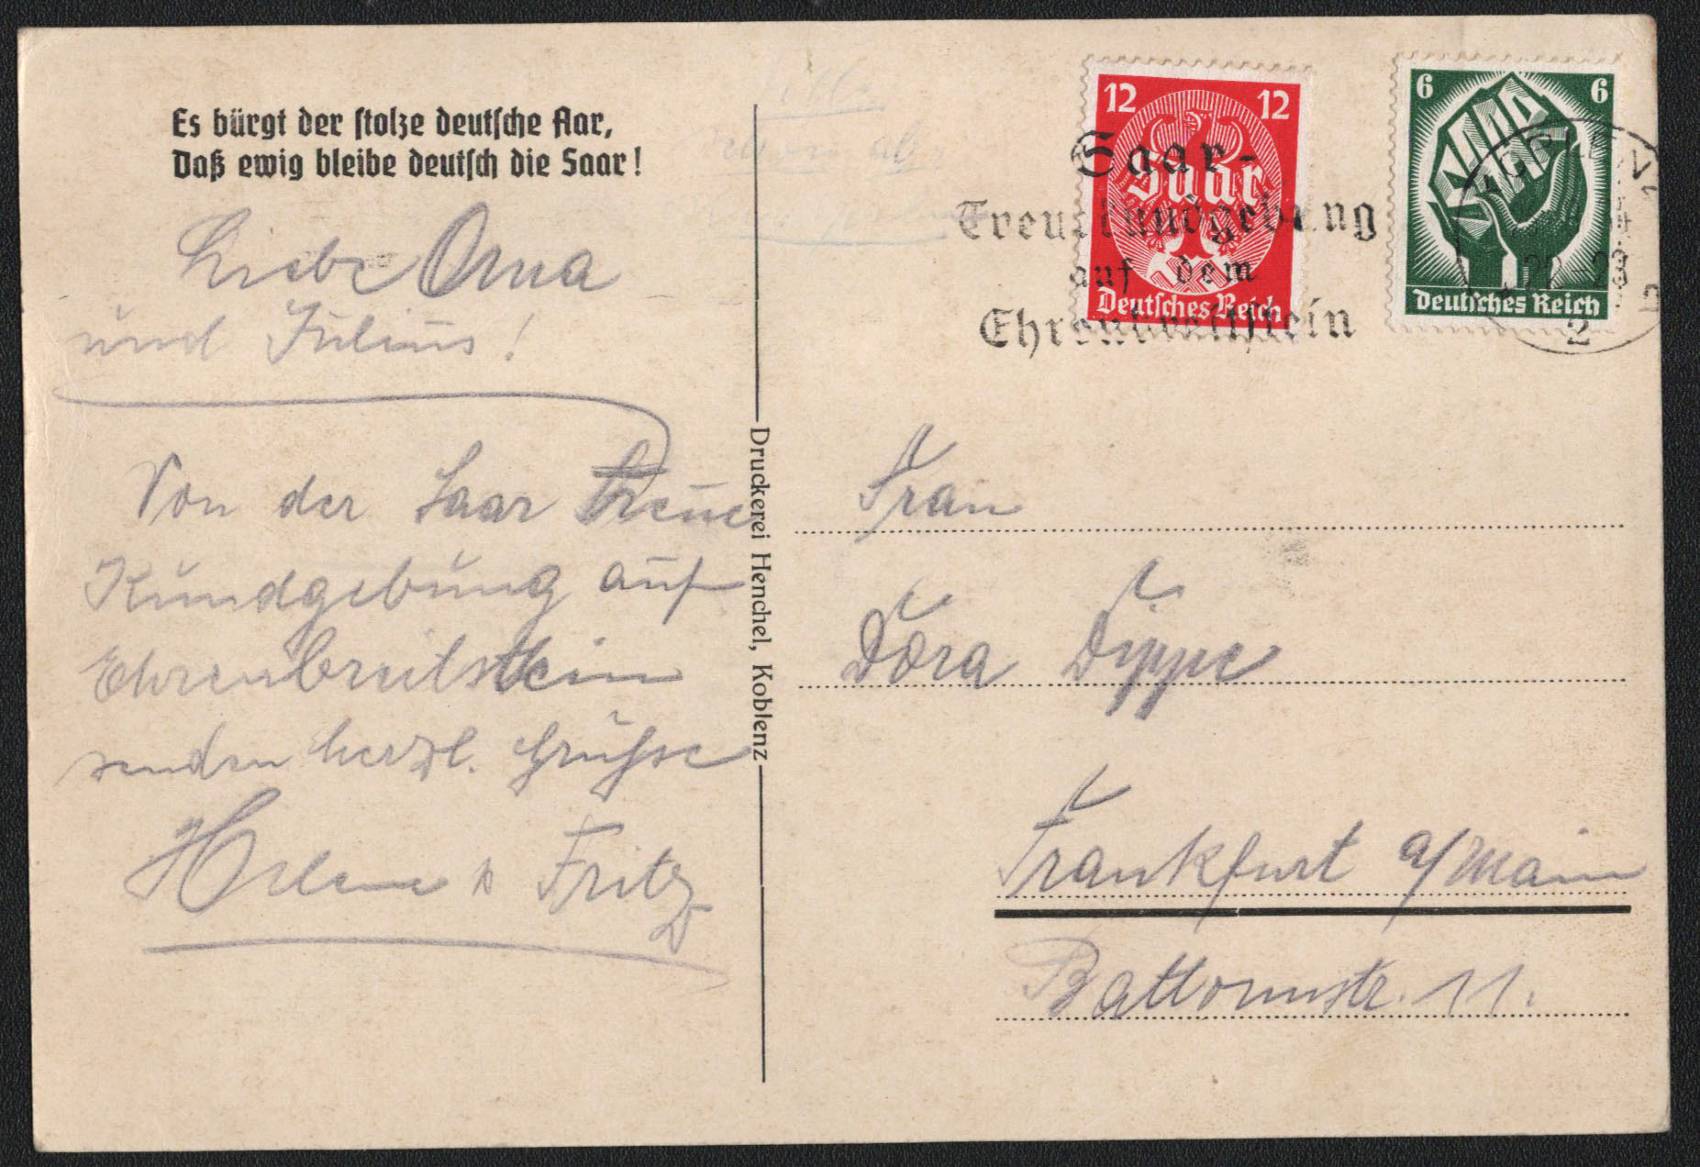 Es bürgt der stolze deutsche Aar,
Daß ewig bleibe deutsch die Saar!
Liebe Oma
und Julius!
Von der Saar Treue
Kundgebung auf
Ehrenbreitstein
senden herzl. Grüsse
Helene u Fritz
Druckerei Henchel, Koblenz
12 12
Saar
Deutsches Reich
6 6
Saar
Deutsches Reich
Saar-
Treuekundgebung
auf dem
Ehrenbreitstein
2
Frau
Dora Dippe
Frankfurt a/Main
Battonnstr. 11.